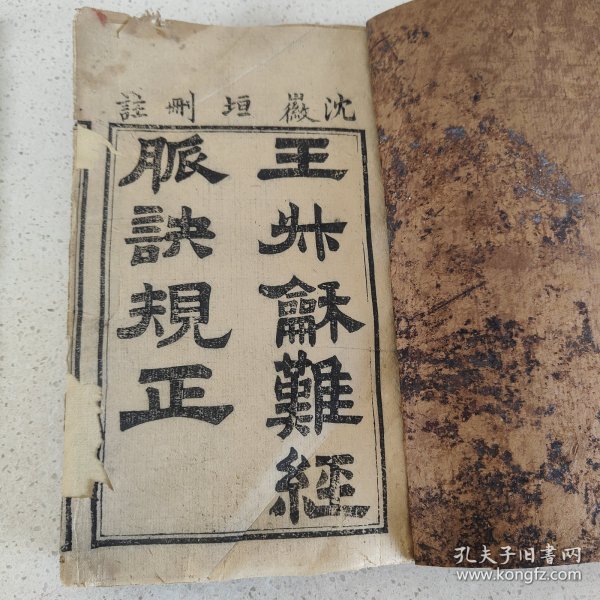 沈薇垣刪註
王叔龢難經
脈訣規正
孔夫子旧书网
www.kongfz.com